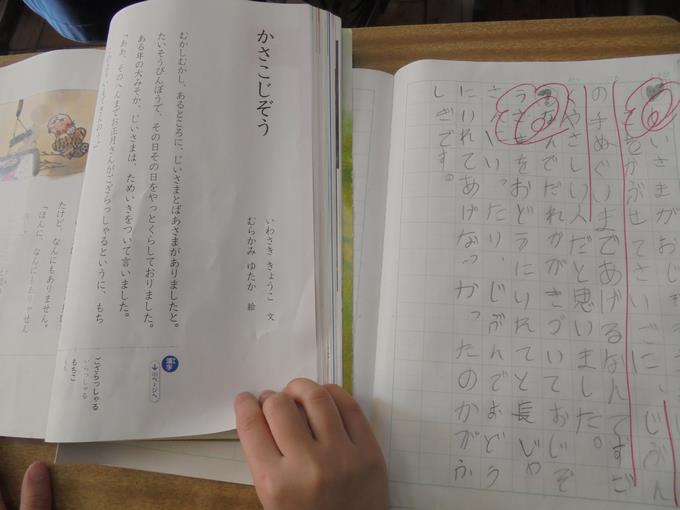 かさこじぞう
いわさき きょうこ 文
むらかみ ゆたか 絵
むかしむかし、あるところに、じいさまとばあさまがありましたと。
たいそうびんぼうで、その日その日をやっとくらしておりました。
ある年の大みそか、じいさまは、ためいきをついて言いました。
「ああ、そのへんまでお正月さんがござらっしゃるというに、もち
漢字
ページへ
ござらっしゃる
いらっしゃる
もちこ
たけど、なんにもありません。
「ほんに、なんにもありゃせん
いさまがおじ
をかぶせてさいごに、じぶん
の手ぬぐいまであげるなんてすご
くやさしい人だと思いました。
なんでだれかがきづいておじぞ
うさまをおどうにいれてと長じゃ
さんにいったり、じぶんでおどう
にいれてあげなっかったのかがふ
しぎです。